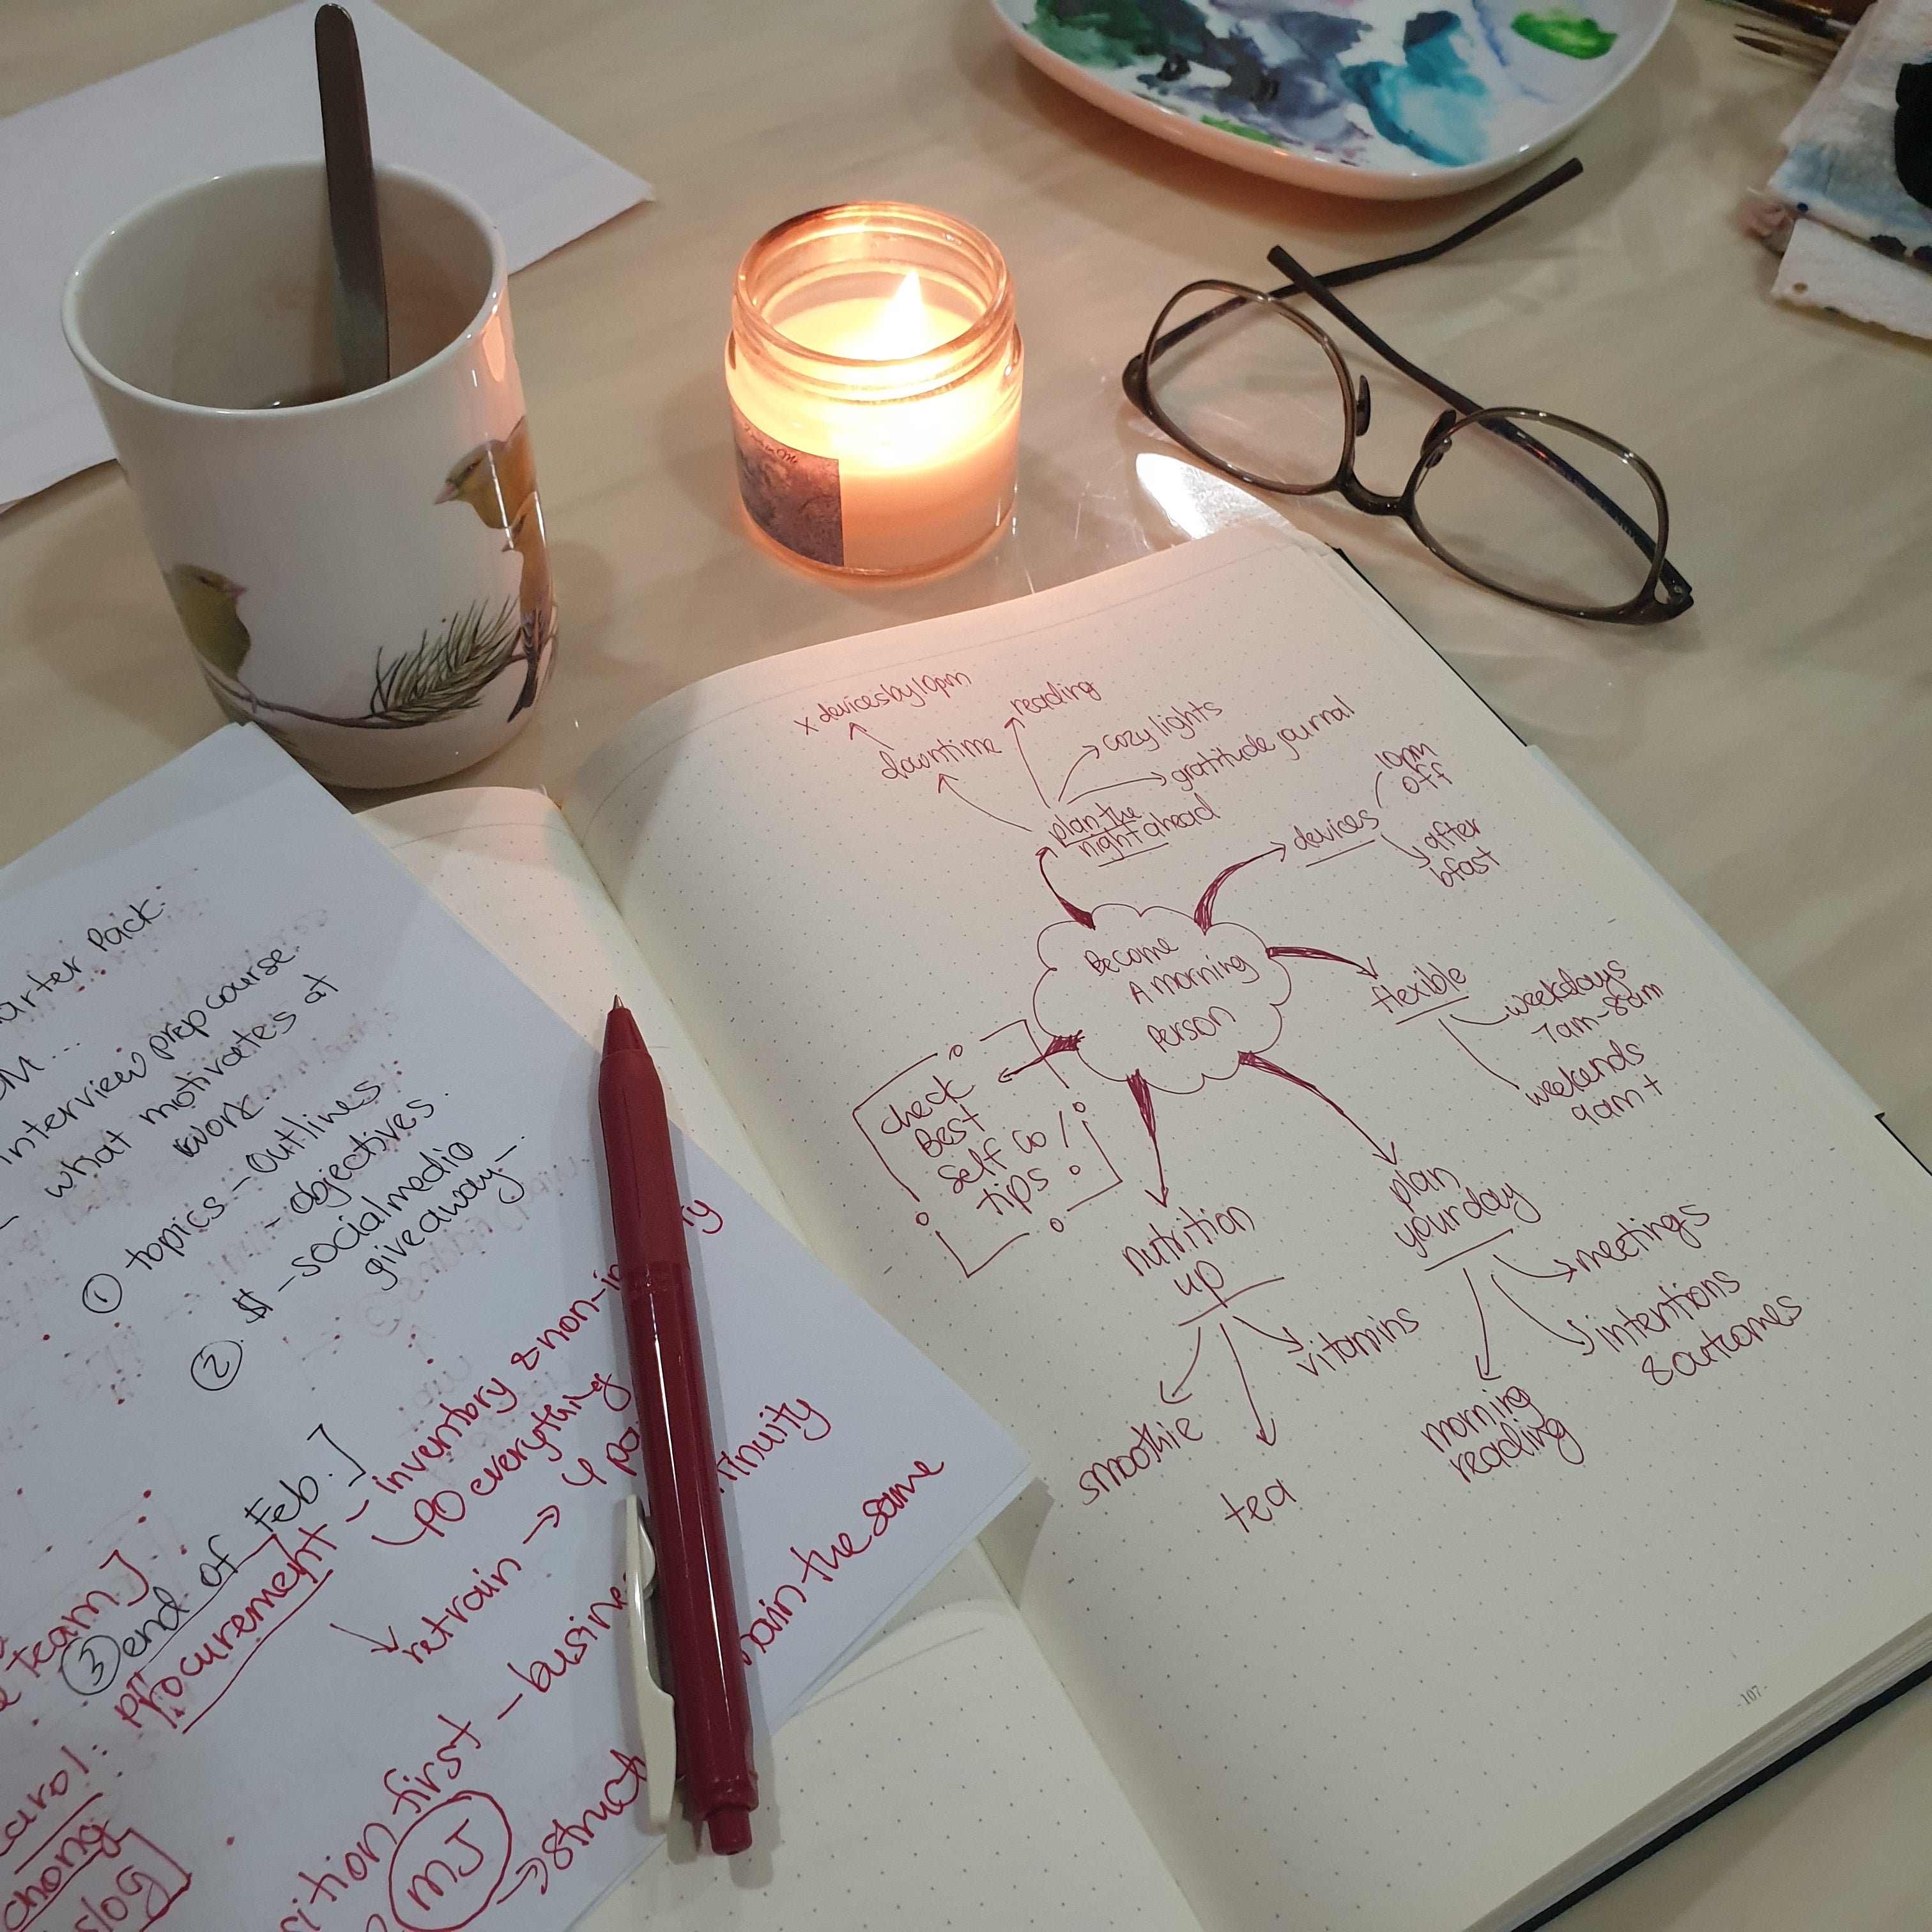 x devices by 10pm
reading
downtime
cozy lights
gratitude journal
plan the
night ahead
devices
10pm
off
after
bfast
Become
A morning
Person
flexible
weekdays
7am-8am
weekends
9am+
check
Best
Self Co
tips
nutrition
up
smoothie
tea
vitamins
plan
your day
meetings
intentions
& outcomes
morning
reading
-107-
Pack.
interview prep course.
- what motivates at
work..
① topics - Outlines
- objectives.
② $ - social media
giveaway -
③ end of Feb.]
team]
procurement - inventory & non-in
PO everything
retrain → 4
first - busine
ain the same
MJ
struct